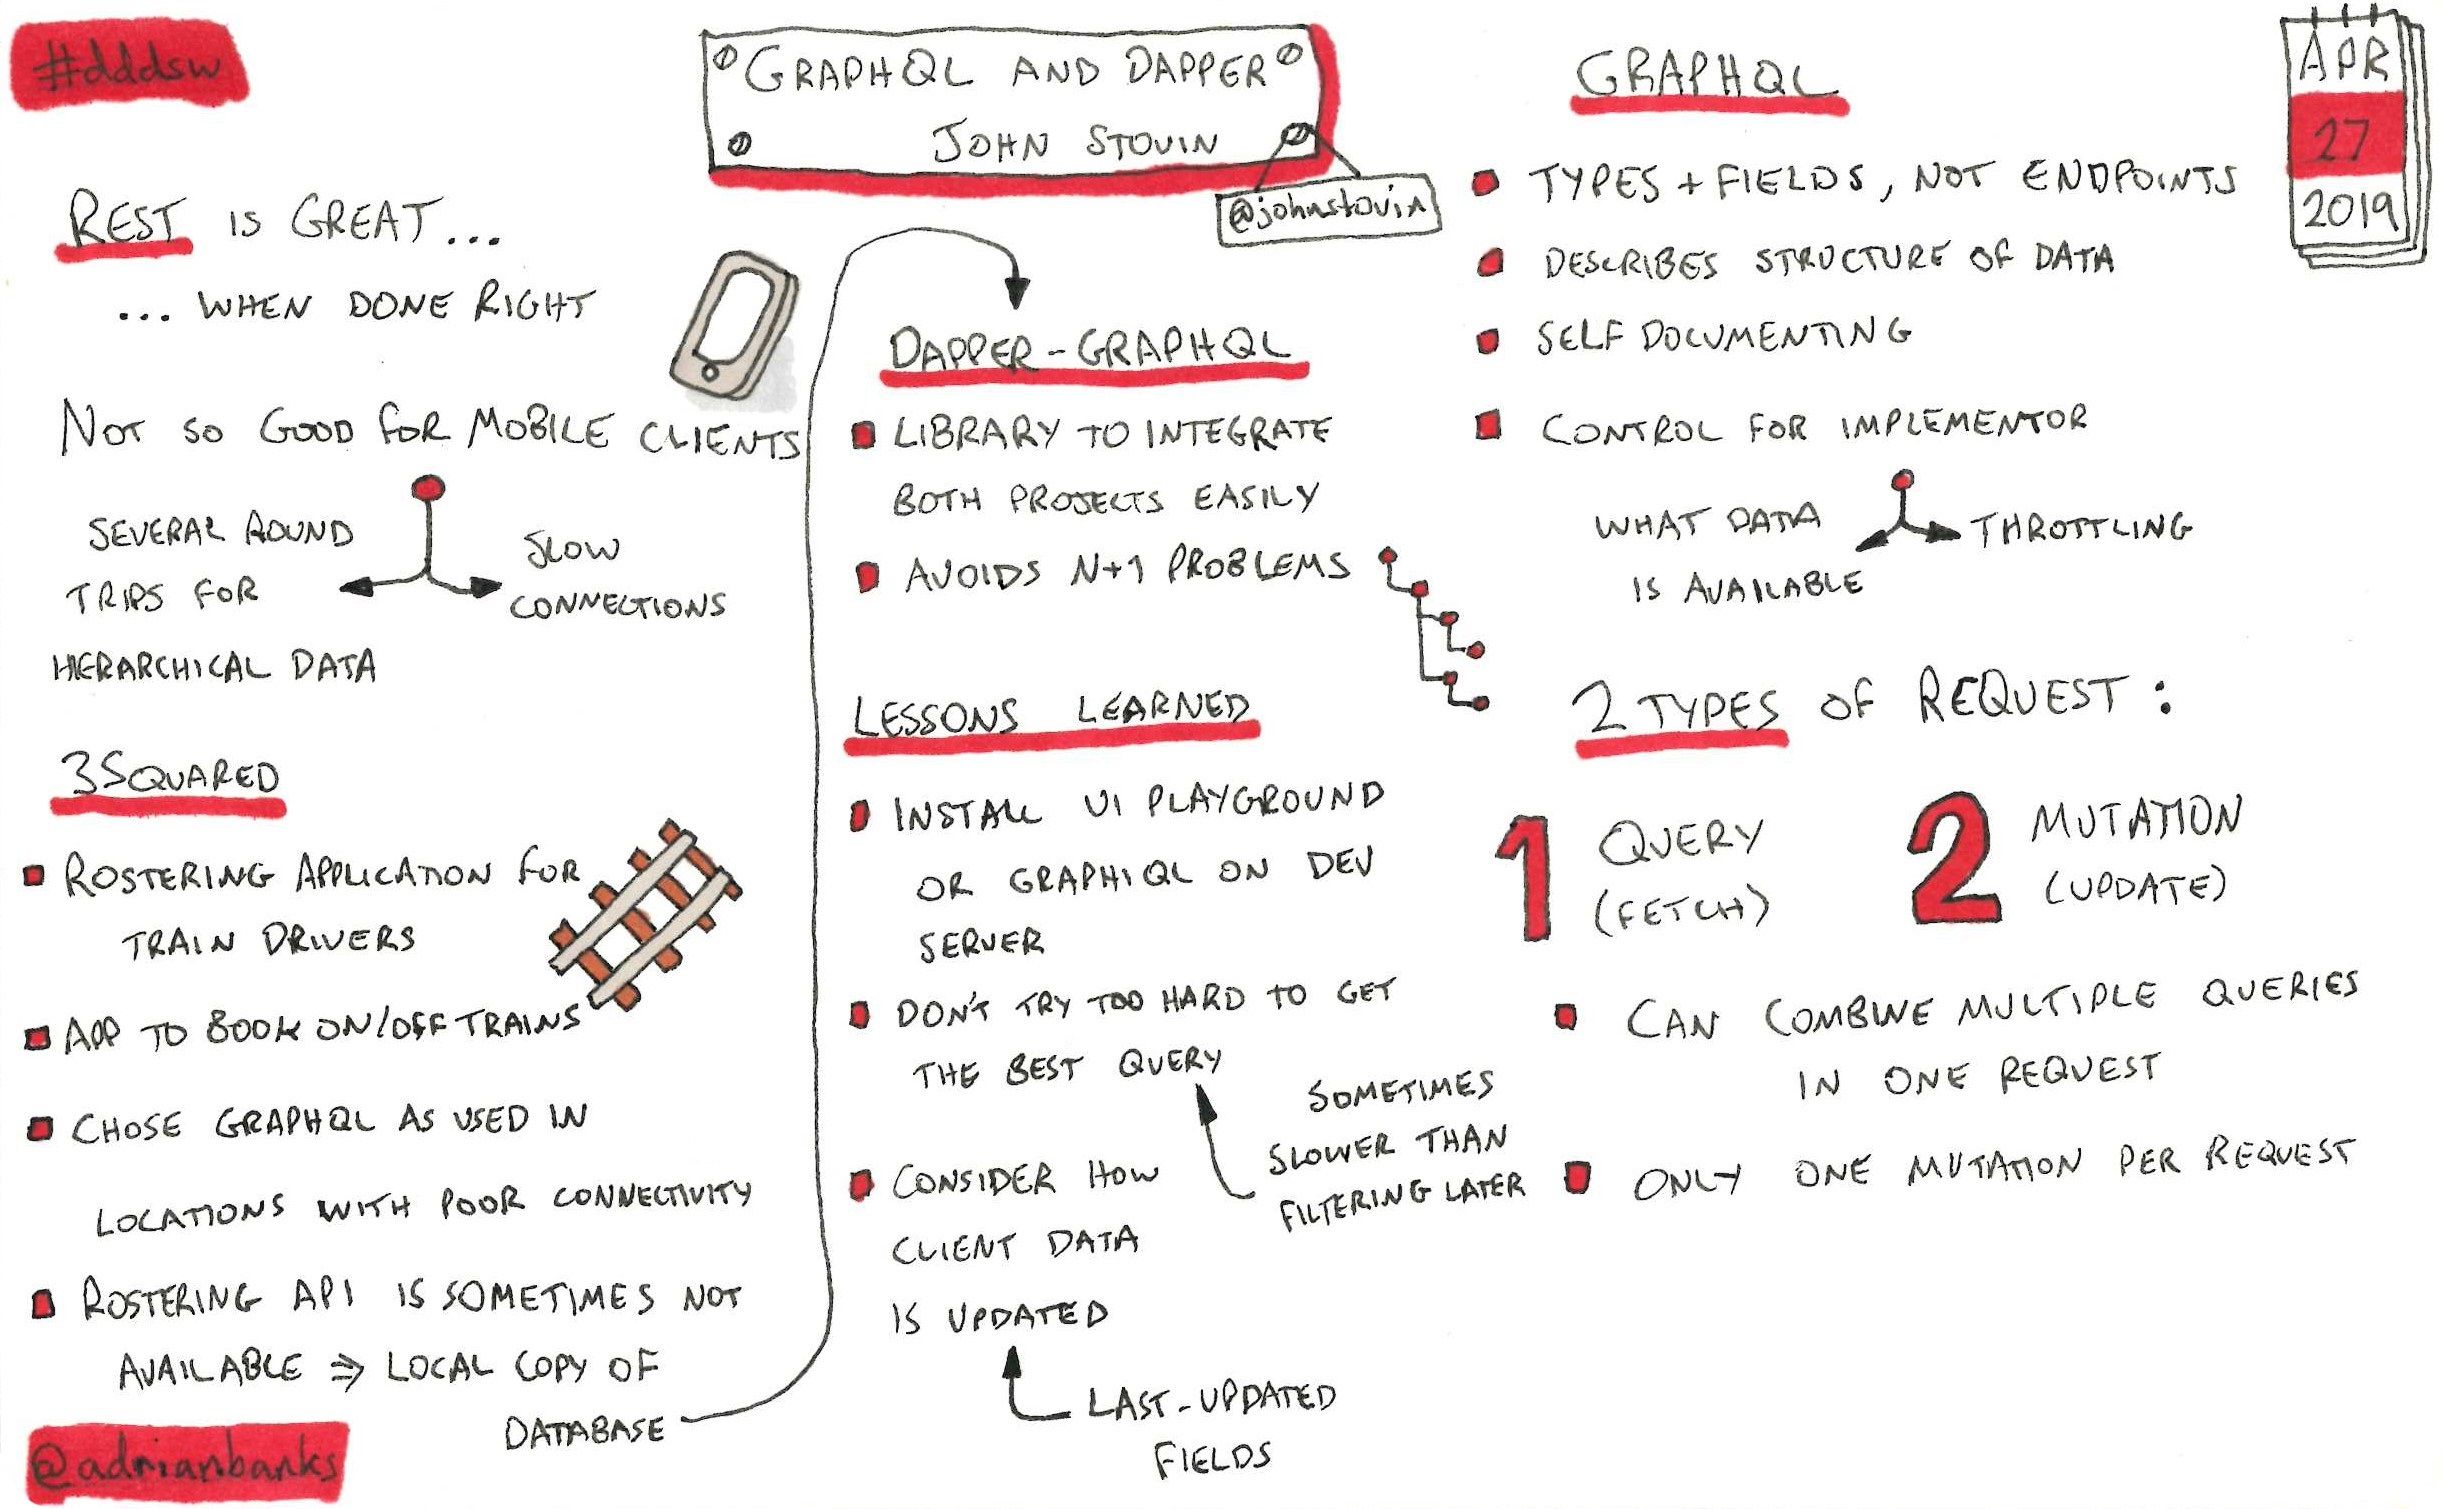 #dddsw
GRAPHQL AND DAPPER
JOHN STOVIN
@johnstovin
APR
27
2019
REST IS GREAT...
... WHEN DONE RIGHT
NOT SO GOOD FOR MOBILE CLIENTS
SEVERAL ROUND
TRIPS FOR
HIERARCHICAL DATA
SLOW
CONNECTIONS
3SQUARED
ROSTERING APPLICATION FOR
TRAIN DRIVERS
APP TO BOOK ON/OFF TRAINS
CHOSE GRAPHQL AS USED IN
LOCATIONS WITH POOR CONNECTIVITY
ROSTERING API IS SOMETIMES NOT
AVAILABLE ⇒ LOCAL COPY OF
DATABASE
@adrianbanks
DAPPER-GRAPHQL
LIBRARY TO INTEGRATE
BOTH PROJECTS EASILY
AVOIDS N+1 PROBLEMS
LESSONS LEARNED
INSTALL UI PLAYGROUND
OR GRAPHIQL ON DEV
SERVER
DON'T TRY TOO HARD TO GET
THE BEST QUERY
SOMETIMES
SLOWER THAN
FILTERING LATER
CONSIDER HOW
CLIENT DATA
IS UPDATED
LAST-UPDATED
FIELDS
GRAPHQL
TYPES + FIELDS, NOT ENDPOINTS
DESCRIBES STRUCTURE OF DATA
SELF DOCUMENTING
CONTROL FOR IMPLEMENTOR
WHAT DATA
IS AVAILABLE
THROTTLING
2 TYPES OF REQUEST:
1 QUERY
(FETCH)
2 MUTATION
(UPDATE)
CAN COMBINE MULTIPLE QUERIES
IN ONE REQUEST
ONLY ONE MUTATION PER REQUEST